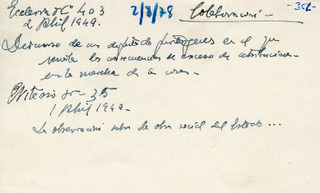 Ecclesia nº 403 2/8/78 Colaboración - -356-
2 Abril 1949.
Discurso de un diputado portugues en el que
resulta los inconvenientes de exceso de atribuciones
en la marcha de la
Criterio nº - 35
1 Abril 1949 -
La observación sobre la obra social del Estado ...